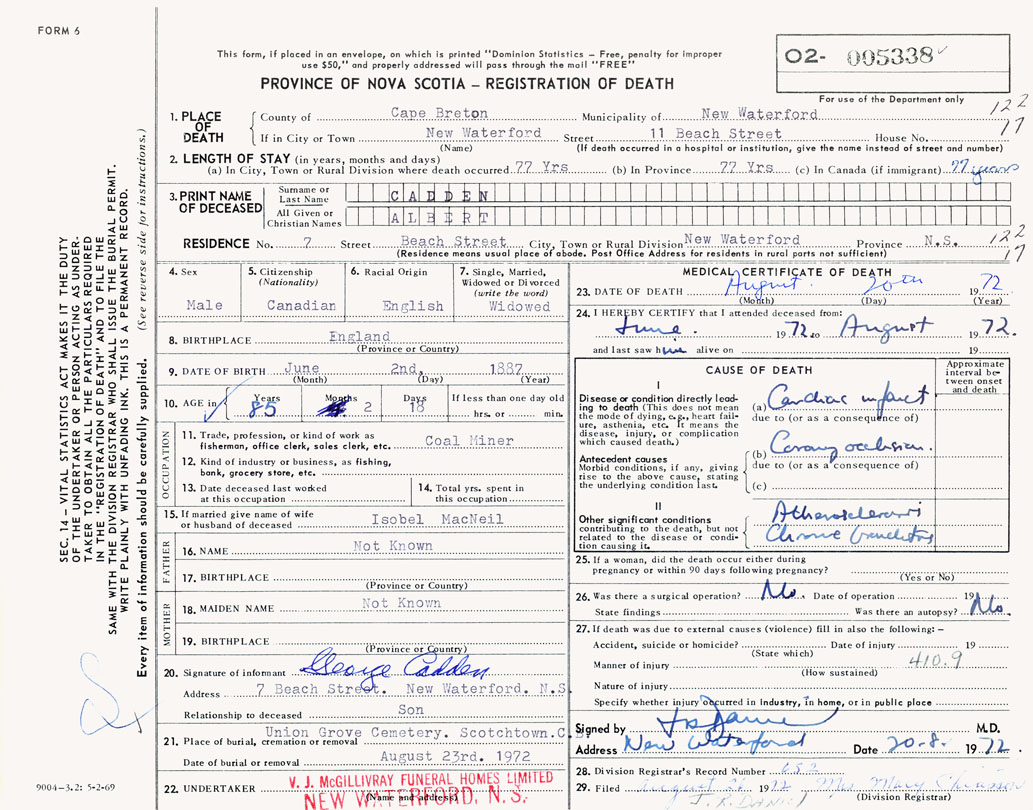 FORM 6
This form, if placed in an envelope, on which is printed "Dominion Statistics – Free, penalty for improper
use $50," and properly addressed will pass through the mail "FREE"
O2- 005338
PROVINCE OF NOVA SCOTIA – REGISTRATION OF DEATH
For use of the Department only
122
17
1. PLACE OF DEATH
County of Cape Breton Municipality of New Waterford
If in City or Town New Waterford Street 11 Beach Street House No.
(Name) (If death occurred in a hospital or institution, give the name instead of street and number)
2. LENGTH OF STAY (in years, months and days)
(a) In City, Town or Rural Division where death occurred 77 Yrs (b) In Province 77 Yrs (c) In Canada (if immigrant) 77 years
3. PRINT NAME OF DECEASED
Surname or Last Name CADDEN
All Given or Christian Names ALBERT
RESIDENCE No. 7 Street Beach Street City, Town or Rural Division New Waterford Province N.S.
122
17
(Residence means usual place of abode. Post Office Address for residents in rural parts not sufficient)
4. Sex
Male
5. Citizenship
(Nationality)
Canadian
6. Racial Origin
English
7. Single, Married,
Widowed or Divorced
(write the word)
Widowed
8. BIRTHPLACE England
(Province or Country)
9. DATE OF BIRTH June 2nd, 1887
(Month) (Day) (Year)
10. AGE in Years 85 Months 2 Days 18 If less than one day old
hrs. or min.
OCCUPATION
11. Trade, profession, or kind of work as
fisherman, office clerk, sales clerk, etc. Coal Miner
12. Kind of industry or business, as fishing,
bank, grocery store, etc.
13. Date deceased last worked
at this occupation
14. Total yrs. spent in
this occupation
15. If married give name of wife
or husband of deceased Isobel MacNeil
FATHER
16. NAME Not Known
17. BIRTHPLACE
(Province or Country)
MOTHER
18. MAIDEN NAME Not Known
19. BIRTHPLACE
(Province or Country)
20. Signature of informant George Cadden
Address 7 Beach Street. New Waterford. N.S.
Relationship to deceased Son
21. Place of burial, cremation or removal Union Grove Cemetery. Scotchtown.C.B.
Date of burial or removal August 23rd. 1972
22. UNDERTAKER V. J. McGILLIVRAY FUNERAL HOMES LIMITED
(Name and address)
NEW WATERFORD, N. S.
MEDICAL CERTIFICATE OF DEATH
23. DATE OF DEATH August 20th 1972
(Month) (Day) (Year)
24. I HEREBY CERTIFY that I attended deceased from:
June 1972 to August 1972.
and last saw him alive on 19
CAUSE OF DEATH
Approximate
interval be-
tween onset
and death
I
Disease or condition directly lead-
ing to death (This does not mean
the mode of dying, e.g., heart fail-
ure, asthenia, etc. It means the
disease, injury, or complication
which caused death.)
(a) Cardiac infarct
due to (or as a consequence of)
Antecedent causes
Morbid conditions, if any, giving
rise to the above cause, stating
the underlying condition last.
(b) Coronary occlusion.
due to (or as a consequence of)
(c)
II
Other significant conditions
contributing to the death, but not
related to the disease or condi-
tion causing it.
Atherosclerosis
Chronic bronchitis
25. If a woman, did the death occur either during
pregnancy or within 90 days following pregnancy?
(Yes or No)
26. Was there a surgical operation? No. Date of operation 19
State findings Was there an autopsy? No.
27. If death was due to external causes (violence) fill in also the following: –
Accident, suicide or homicide? Date of injury 19
(State which)
Manner of injury 410.9
(How sustained)
Nature of injury
Specify whether injury occurred in Industry, in home, or in public place
Signed by M.D.
Address New Waterford Date 20-8. 1972.
28. Division Registrar's Record Number 652
29. Filed August 1972 Mrs Mary
(Division Registrar)
SEC. 14 – VITAL STATISTICS ACT MAKES IT THE DUTY
OF THE UNDERTAKER OR PERSON ACTING AS UNDER-
TAKER TO OBTAIN ALL THE PARTICULARS REQUIRED
IN THE "REGISTRATION OF DEATH" AND TO FILE THE
SAME WITH THE DIVISION REGISTRAR WHO SHALL ISSUE THE BURIAL PERMIT.
WRITE PLAINLY WITH UNFADING INK. THIS IS A PERMANENT RECORD.
Every item of information should be carefully supplied. (See reverse side for instructions.)
9004-3.2: 5-2-69